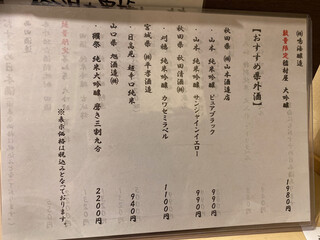 ㈲鳴海醸造
数量限定 稲村屋 大吟醸 1980円
【おすすめ県外酒】
秋田県 ㈱山本酒造店
・山本 純米吟醸 ピュアブラック 990円
・山本 純米吟醸 サンシャインイエロー 990円
秋田県 秋田清酒㈱
・刈穂 純米吟醸 カワセミラベル 1100円
宮城県 ㈱平孝酒造
・日高見 超辛口純米 940円
山口県 旭酒造㈱
・獺祭 純米大吟醸 磨き三割九分 2200円
※表示価格は税込みとなっております。